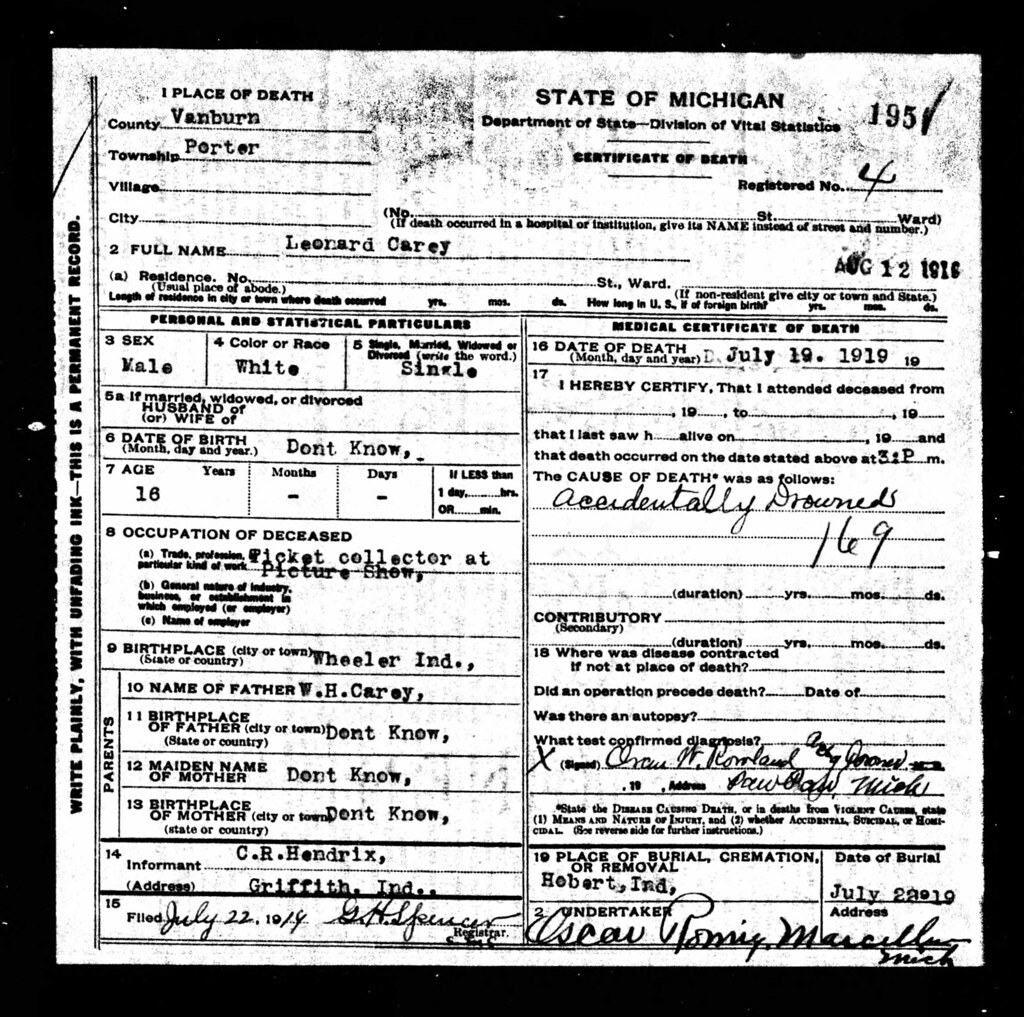 1 PLACE OF DEATH
County Vanburn
Township Porter
Village
City
STATE OF MICHIGAN
Department of State—Division of Vital Statistics
CERTIFICATE OF DEATH
1951
Registered No. 4
(No. St. Ward)
(If death occurred in a hospital or institution, give its NAME instead of street and number.)
2 FULL NAME Leonard Carey
AUG 12 1916
(a) Residence. No. St., Ward.
(Usual place of abode.) (If non-resident give city or town and State.)
Length of residence in city or town where death occurred yrs. mos. ds. How long in U. S., if of foreign birth? yrs. mos. ds.
PERSONAL AND STATISTICAL PARTICULARS
3 SEX
Male
4 Color or Race
White
5 Single, Married, Widowed or
Divorced (write the word.)
Single
5a If married, widowed, or divorced
HUSBAND of
(or) WIFE of
6 DATE OF BIRTH
(Month, day and year.) Dont Know,
7 AGE Years Months Days If LESS than
16 - - 1 day, hrs.
OR min.
8 OCCUPATION OF DECEASED
(a) Trade, profession,
particular kind of work Ticket collector at
Picture Show,
(b) General nature of industry,
business, or establishment in
which employed (or employer)
(c) Name of employer
9 BIRTHPLACE (city or town)
(State or country) Wheeler Ind.,
PARENTS
10 NAME OF FATHER W.H.Carey,
11 BIRTHPLACE
OF FATHER (city or town) Dont Know,
(State or country)
12 MAIDEN NAME
OF MOTHER Dont Know,
13 BIRTHPLACE
OF MOTHER (city or town) Dont Know,
(state or country)
14
Informant C.R.Hendrix,
(Address) Griffith, Ind.,
15
Filed July 22, 1919 G.H. Spencer
Registrar.
MEDICAL CERTIFICATE OF DEATH
16 DATE OF DEATH
(Month, day and year) D. July 19. 1919 19
17
I HEREBY CERTIFY, That I attended deceased from
, 19 , to , 19
that I last saw h alive on , 19 and
that death occurred on the date stated above at 3:P m.
The CAUSE OF DEATH* was as follows:
Accidentally Drowned
169
(duration) yrs. mos. ds.
CONTRIBUTORY
(Secondary)
(duration) yrs. mos. ds.
18 Where was disease contracted
if not at place of death?
Did an operation precede death? Date of
Was there an autopsy?
What test confirmed diagnosis?
X (Signed) Oscar W. Rowland
, 19 , Address Paw Paw, Mich
*State the DISEASE CAUSING DEATH, or in deaths from VIOLENT CAUSES, state
(1) MEANS AND NATURE OF INJURY, and (2) whether ACCIDENTAL, SUICIDAL, or HOMI-
CIDAL. (See reverse side for further instructions.)
19 PLACE OF BURIAL, CREMATION,
OR REMOVAL
Hobert,Ind,
Date of Burial
July 22 19
2 UNDERTAKER Address
Oscar Romig, Marcellus
Mich
WRITE PLAINLY, WITH UNFADING INK—THIS IS A PERMANENT RECORD.